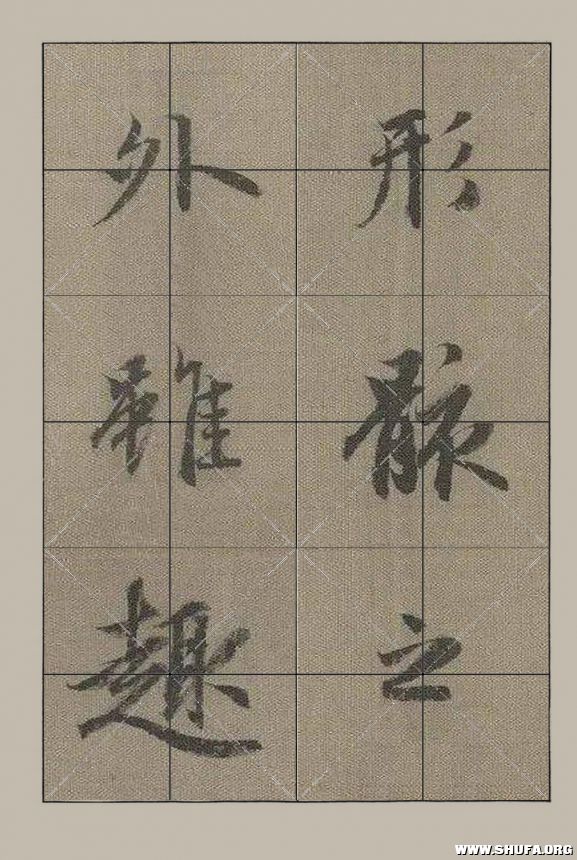 形骸之
外雖趣
WWW.SHUFA.ORG